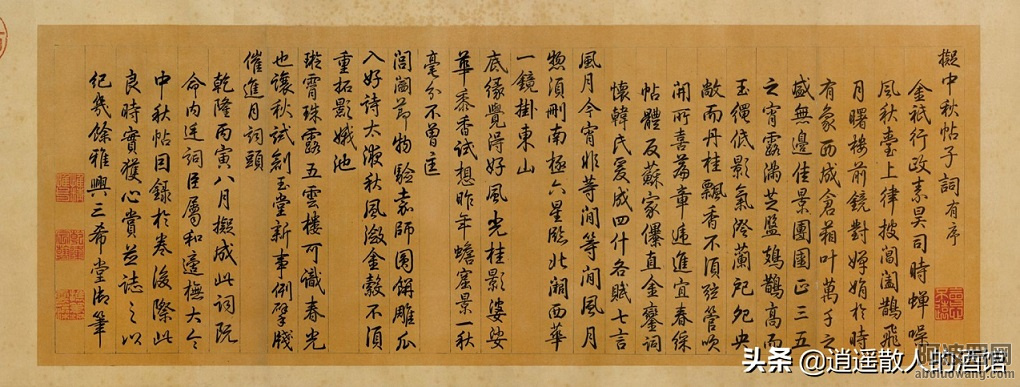 擬中秋帖子詞有序
金祇行政素昊司時蟬噪
風秋臺上律披閶闔鵲飛
月曙樓前鏡對嬋娟於時
有象西成倉箱叶萬子之
盛無邊佳景團圞正三五
之宵露滿芝盤鳷鵲高而
玉繩低影氣澄蘭戺央
敞而丹桂飄香不須弦管吹
開所喜篇章遞進宜春
帖體反蘇家儤直金鑾詞
懷韓氏爰成四什各賦七言
風月今宵非等閒等閒風月
惣須刪南極六星臨北闕西華
一鏡掛東山
底緣覺得好風光桂影婆娑
華黍香試想昨年蟾窟景一秋
毫分不曾
閶闔節物驗師圍餅雕瓜
入好詩太液秋風激金縠不須
重拓影娥池
璇霄珠露五雲樓可識春光
也讓秋試創玉堂新事例擘牋
催進月詞頭
乾隆丙寅八月擬成此詞既
命內廷詞臣屬和撫大令
中秋帖因錄於卷後際此
良時實獲心賞並誌之以
紀幾餘雅興三希堂御筆
头条 @逍遥散人的酒馆
阿波罗网
aboluowang.com